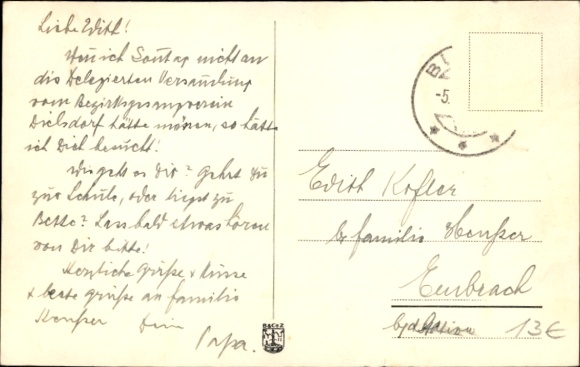 Liebe Edith!
Wen ich Sontag nicht an
die Delegierten Versamlung
vom Bezirksgesangverein
Dielsdorf hätte müssen, so hätte
ich Dich besucht!
Wie gehts es Dir? Gehst Du
zur Schule, oder liegst zu
Bette? Lass bald etwas hören
von Dir bitte!
Herzliche Grüsse + Küsse
+ beste Grüsse an Familie
Dein
Papa.
B
-5.
Edith Kofler
b/ Familie
Embrach
b/d Station
13€